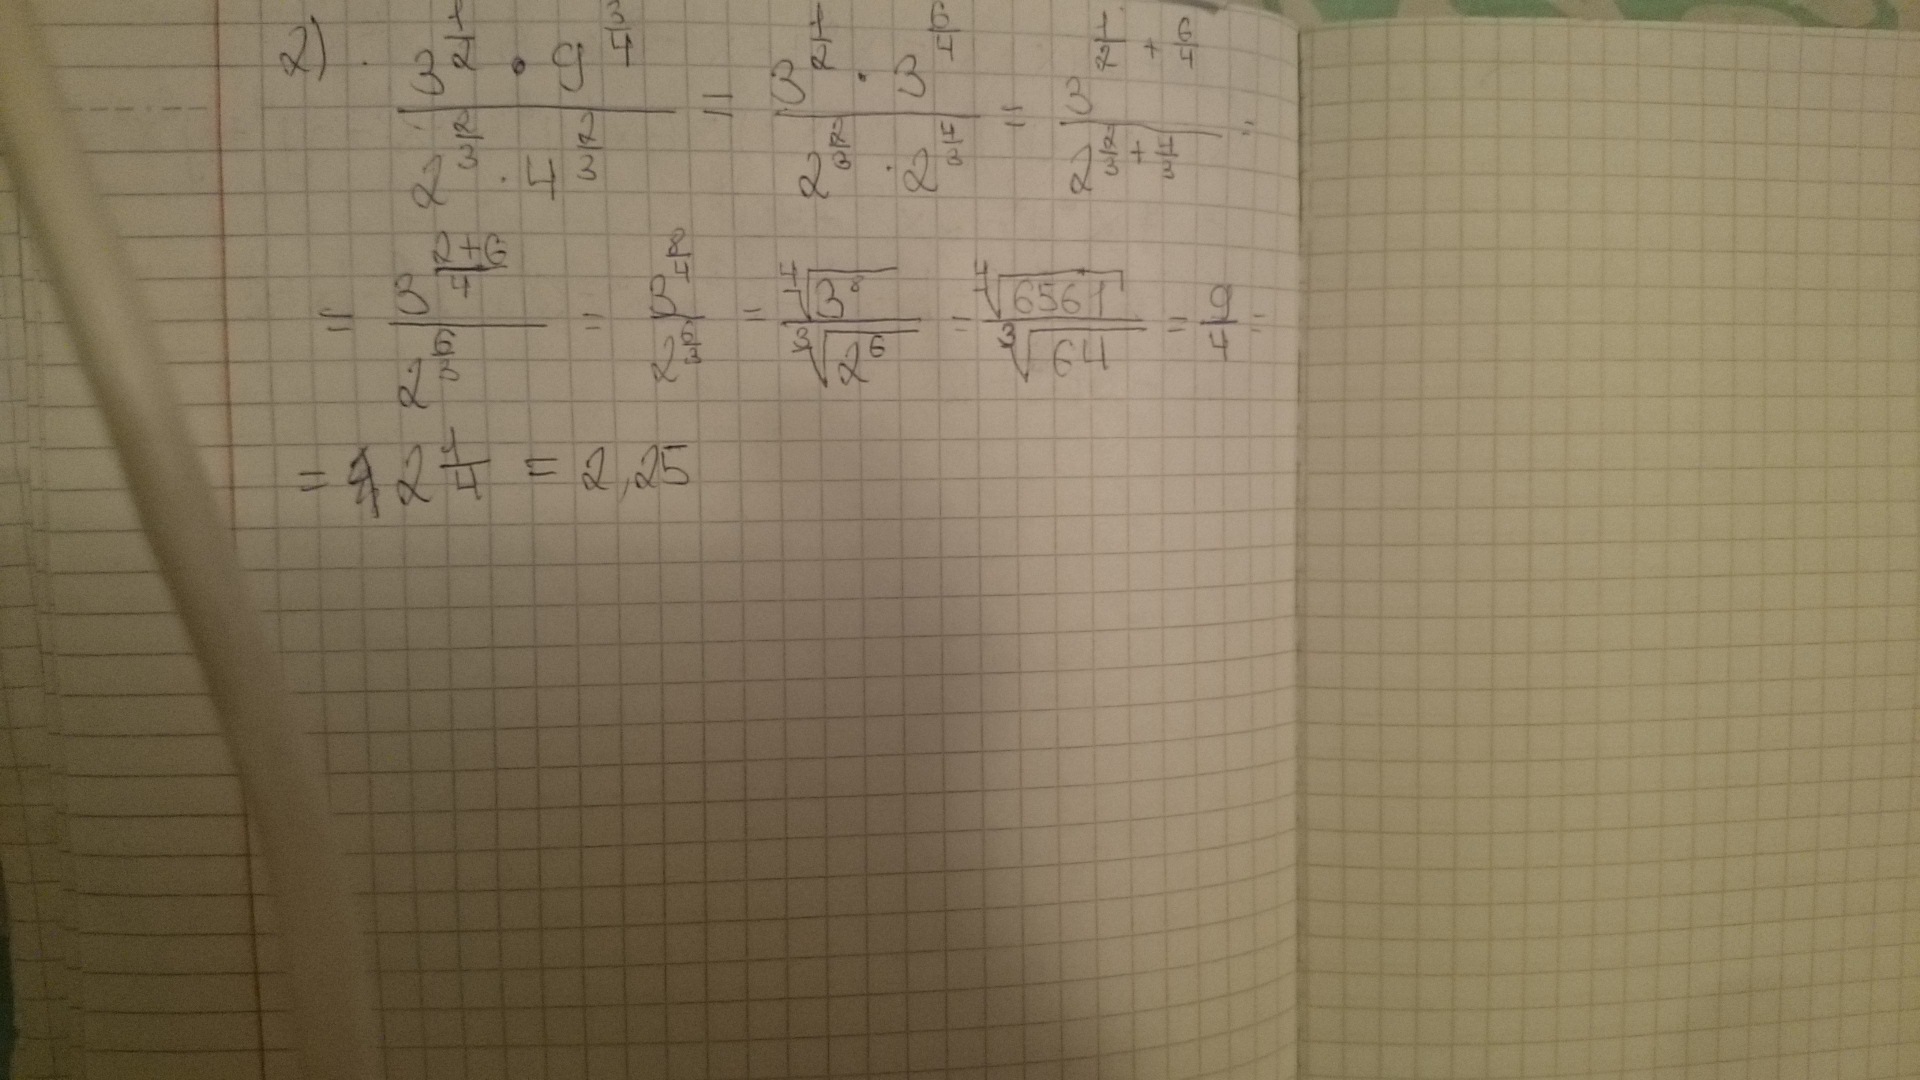 2) \frac{3^{\frac{1}{2}} \cdot 9^{\frac{3}{4}}}{2^{\frac{2}{3}} \cdot 4^{\frac{2}{3}}} = \frac{3^{\frac{1}{2}} \cdot 3^{\frac{6}{4}}}{2^{\frac{2}{3}} \cdot 2^{\frac{4}{3}}} = \frac{3^{\frac{1}{2} + \frac{6}{4}}}{2^{\frac{2}{3} + \frac{4}{3}}} =
= \frac{3^{\frac{2+6}{4}}}{2^{\frac{6}{3}}} = \frac{3^{\frac{8}{4}}}{2^{\frac{6}{3}}} = \frac{\sqrt[4]{3^8}}{\sqrt[3]{2^6}} = \frac{\sqrt[4]{6561}}{\sqrt[3]{64}} = \frac{9}{4} =
= 2\frac{1}{4} = 2,25